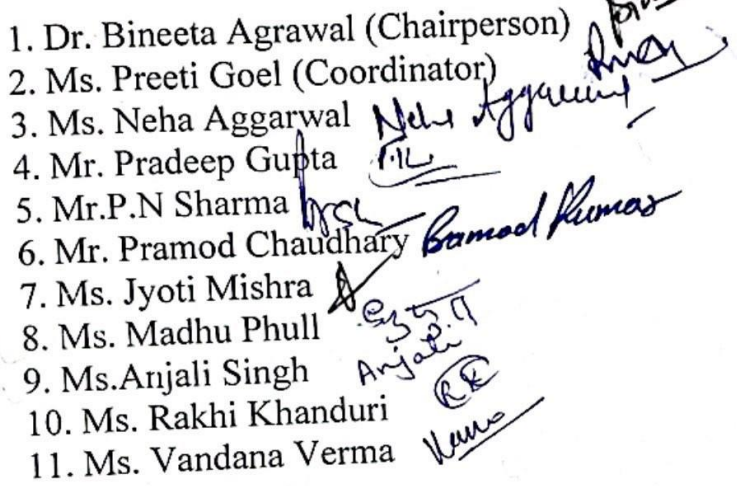 1. Dr. Bineeta Agrawal (Chairperson)
2. Ms. Preeti Goel (Coordinator)
3. Ms. Neha Aggarwal Neha Aggarwal
4. Mr. Pradeep Gupta
5. Mr.P.N Sharma
6. Mr. Pramod Chaudhary Pramod Kumar
7. Ms. Jyoti Mishra
8. Ms. Madhu Phull
9. Ms.Anjali Singh Anjali
10. Ms. Rakhi Khanduri RK
11. Ms. Vandana Verma